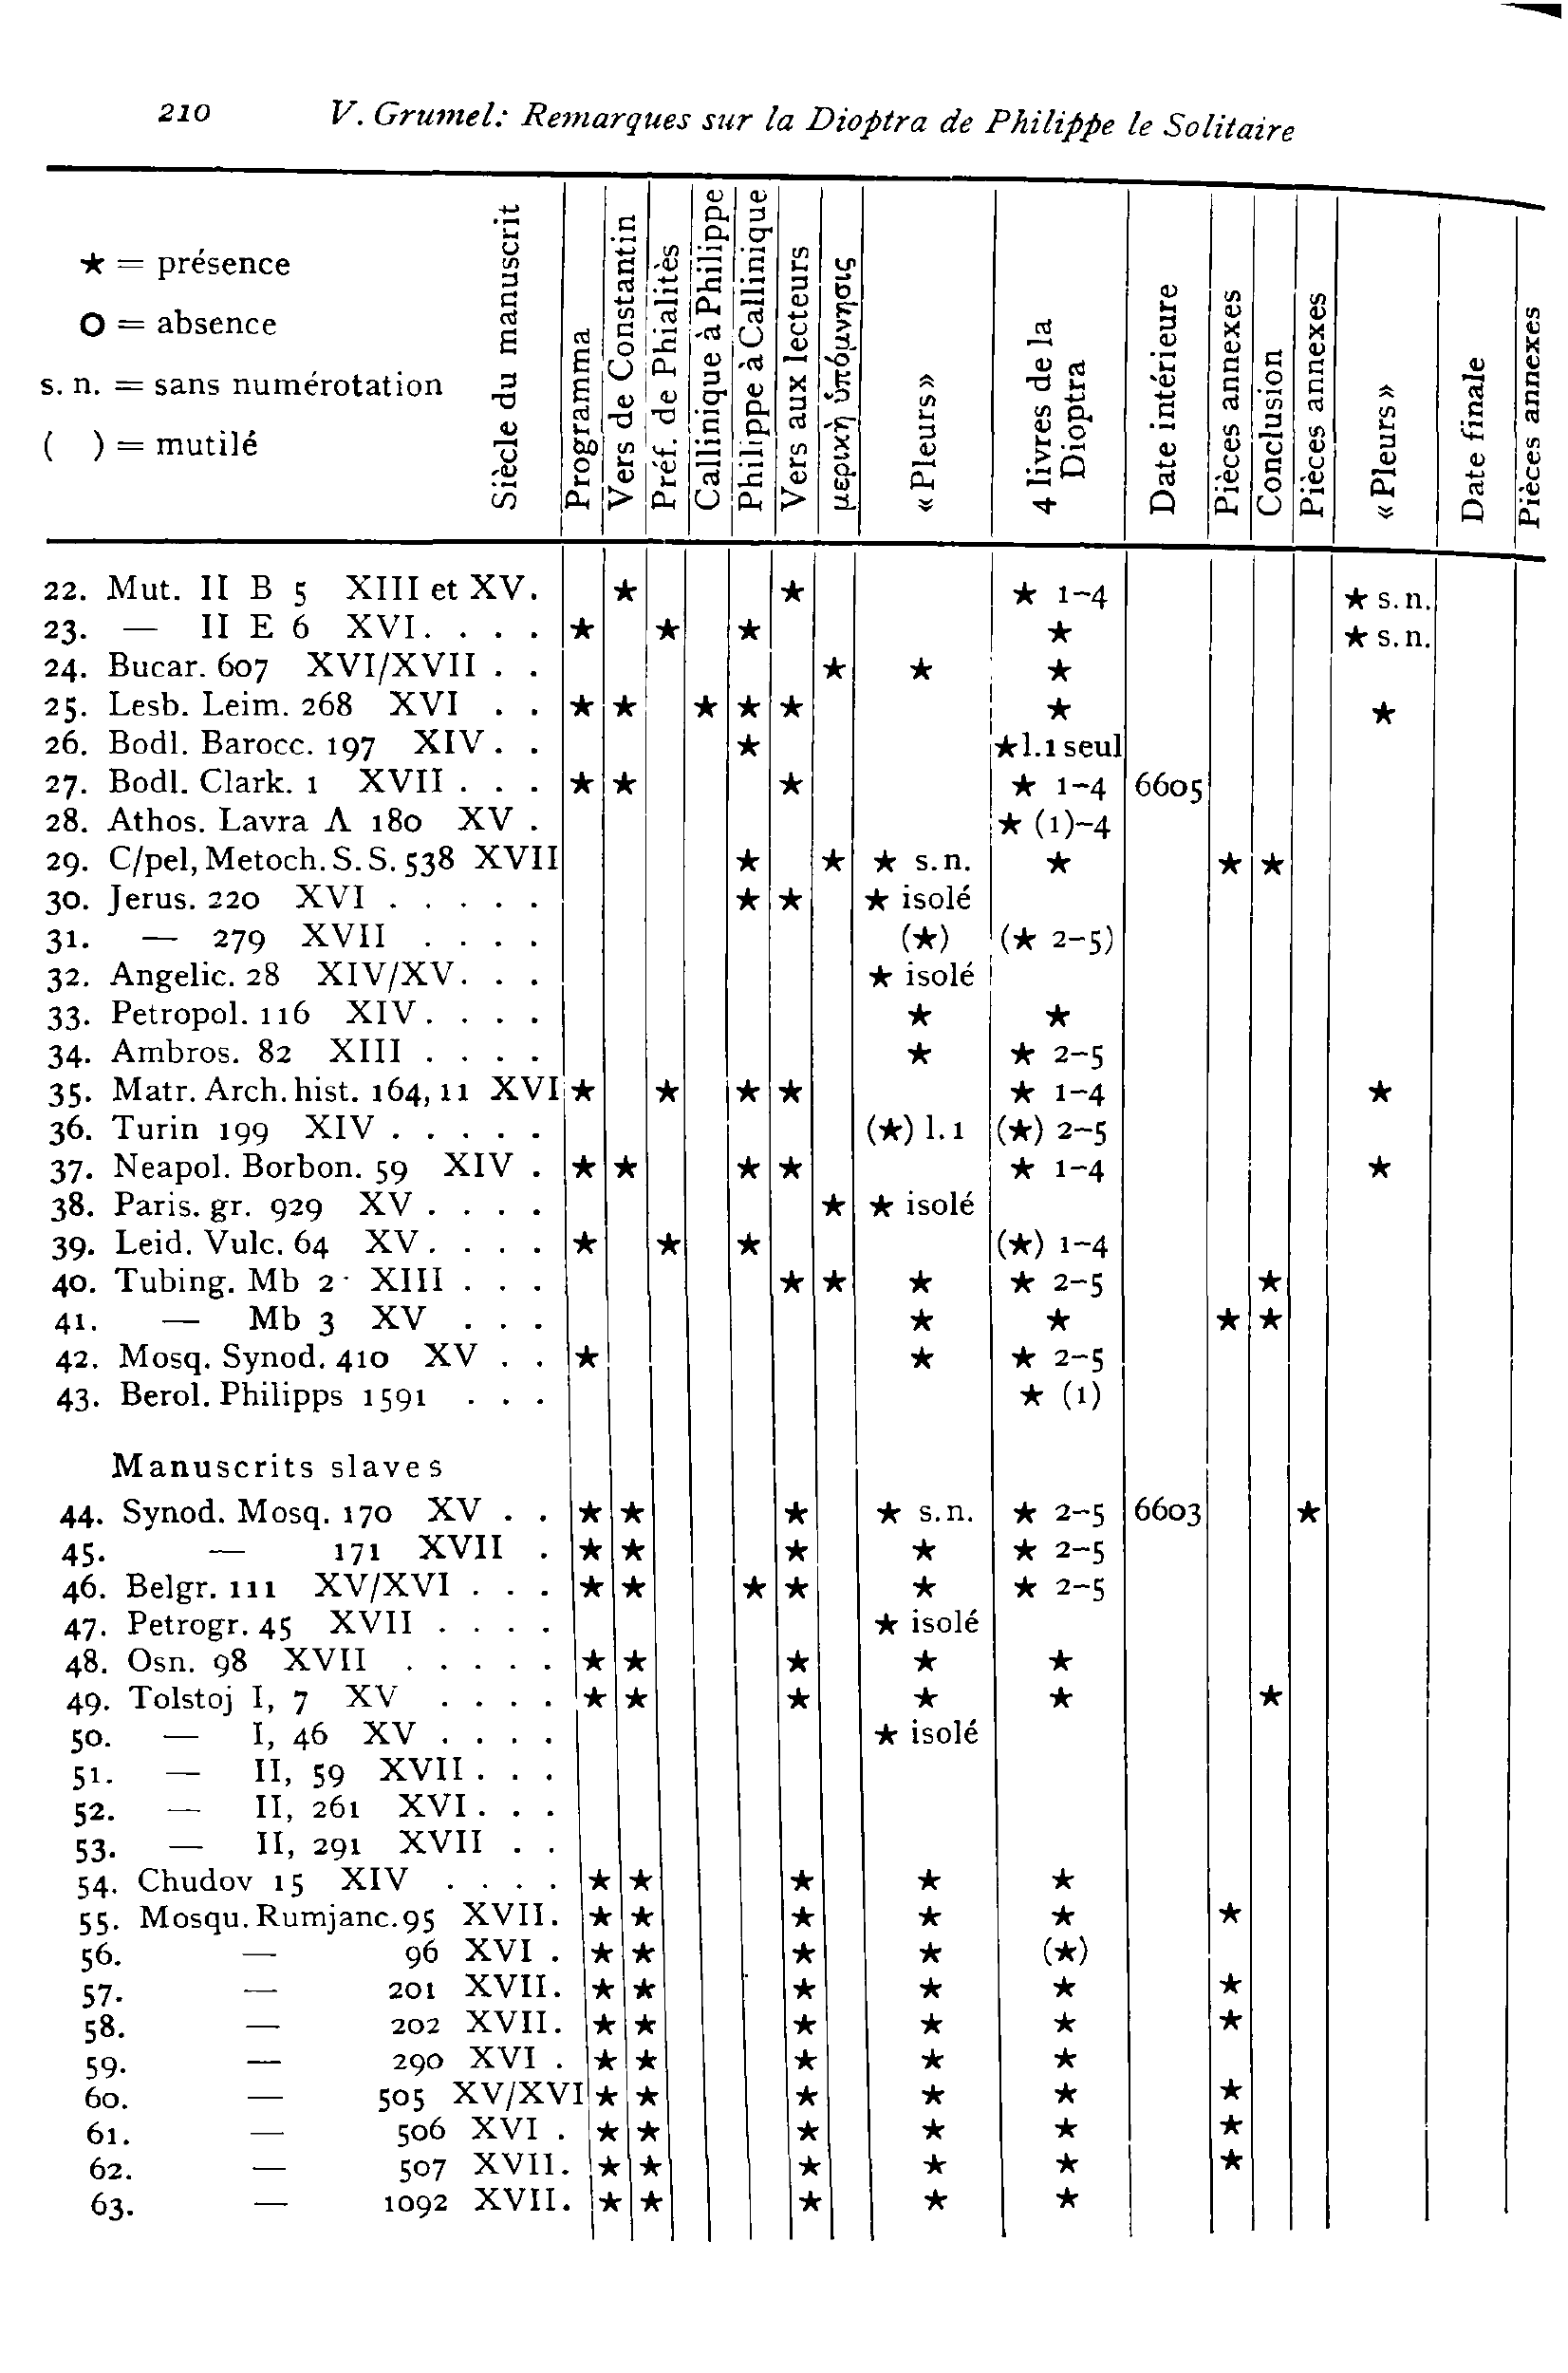 210 V. Grumel: Remarques sur la Dioptra de Philippe le Solitaire
★ = présence
O = absence
s. n. = sans numérotation
( ) = mutilé
Siècle du manuscrit
Programma
Vers de Constantin
Préf. de Phialitès
Callinique à Philippe
Philippe à Callinique
Vers aux lecteurs
μερικὴ ὑπόμνησις
«Pleurs»
4 livres de la
Dioptra
Date intérieure
Pièces annexes
Conclusion
Pièces annexes
«Pleurs»
Date finale
Pièces annexes
22. Mut. II B 5 XIII et XV. ★ ★ ★ 1–4 ★ s. n.
23. — II E 6 XVI. . . . ★ ★ ★ ★ ★ s. n.
24. Bucar. 607 XVI/XVII . . ★ ★ ★
25. Lesb. Leim. 268 XVI . . ★ ★ ★ ★ ★ ★ ★
26. Bodl. Barocc. 197 XIV. . ★ ★ l. 1 seul
27. Bodl. Clark. 1 XVII . . . ★ ★ ★ ★ 1–4 6605
28. Athos. Lavra Λ 180 XV . ★ (1)–4
29. C/pel, Metoch. S. S. 538 XVII ★ ★ ★ s. n. ★ ★ ★
30. Jerus. 220 XVI . . . . . ★ ★ ★ isolé
31. — 279 XVII . . . . (★) (★ 2–5)
32. Angelic. 28 XIV/XV. . . ★ isolé
33. Petropol. 116 XIV. . . . ★ ★
34. Ambros. 82 XIII . . . . ★ ★ 2–5
35. Matr. Arch. hist. 164, 11 XVI ★ ★ ★ ★ ★ 1–4 ★
36. Turin 199 XIV . . . . . (★) l. 1 (★) 2–5
37. Neapol. Borbon. 59 XIV . ★ ★ ★ ★ ★ 1–4 ★
38. Paris. gr. 929 XV . . . . ★ ★ isolé
39. Leid. Vulc. 64 XV. . . . ★ ★ ★ (★) 1–4
40. Tubing. Mb 2 XIII . . . ★ ★ ★ ★ 2–5 ★
41. — Mb 3 XV . . . ★ ★ ★ ★
42. Mosq. Synod. 410 XV . . ★ ★ ★ 2–5
43. Berol. Philipps 1591 . . . ★ (1)
Manuscrits slaves
44. Synod. Mosq. 170 XV . . ★ ★ ★ ★ s. n. ★ 2–5 6603 ★
45. — 171 XVII . ★ ★ ★ ★ ★ 2–5
46. Belgr. 111 XV/XVI . . . ★ ★ ★ ★ ★ ★ 2–5
47. Petrogr. 45 XVII . . . . ★ isolé
48. Osn. 98 XVII . . . . . ★ ★ ★ ★ ★
49. Tolstoj I, 7 XV . . . . ★ ★ ★ ★ ★ ★
50. — I, 46 XV . . . . ★ isolé
51. — II, 59 XVII . . .
52. — II, 261 XVI. . .
53. — II, 291 XVII . .
54. Chudov 15 XIV . . . . ★ ★ ★ ★ ★
55. Mosqu. Rumjanc. 95 XVII. ★ ★ ★ ★ ★ ★
56. — 96 XVI . ★ ★ ★ ★ (★)
57. — 201 XVII. ★ ★ ★ ★ ★ ★
58. — 202 XVII. ★ ★ ★ ★ ★ ★
59. — 290 XVI . ★ ★ ★ ★ ★
60. — 505 XV/XVI ★ ★ ★ ★ ★ ★
61. — 506 XVI . ★ ★ ★ ★ ★ ★
62. — 507 XVII. ★ ★ ★ ★ ★ ★
63. — 1092 XVII. ★ ★ ★ ★ ★